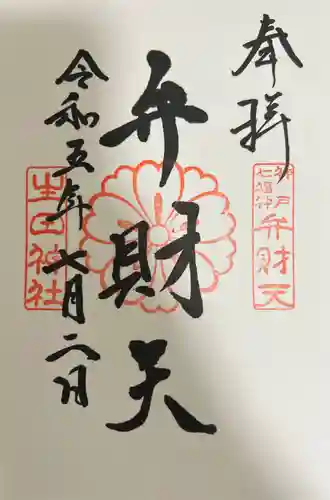 奉拝
神戸七福神
弁財天
弁財天
令和五年七月二日
生田神社